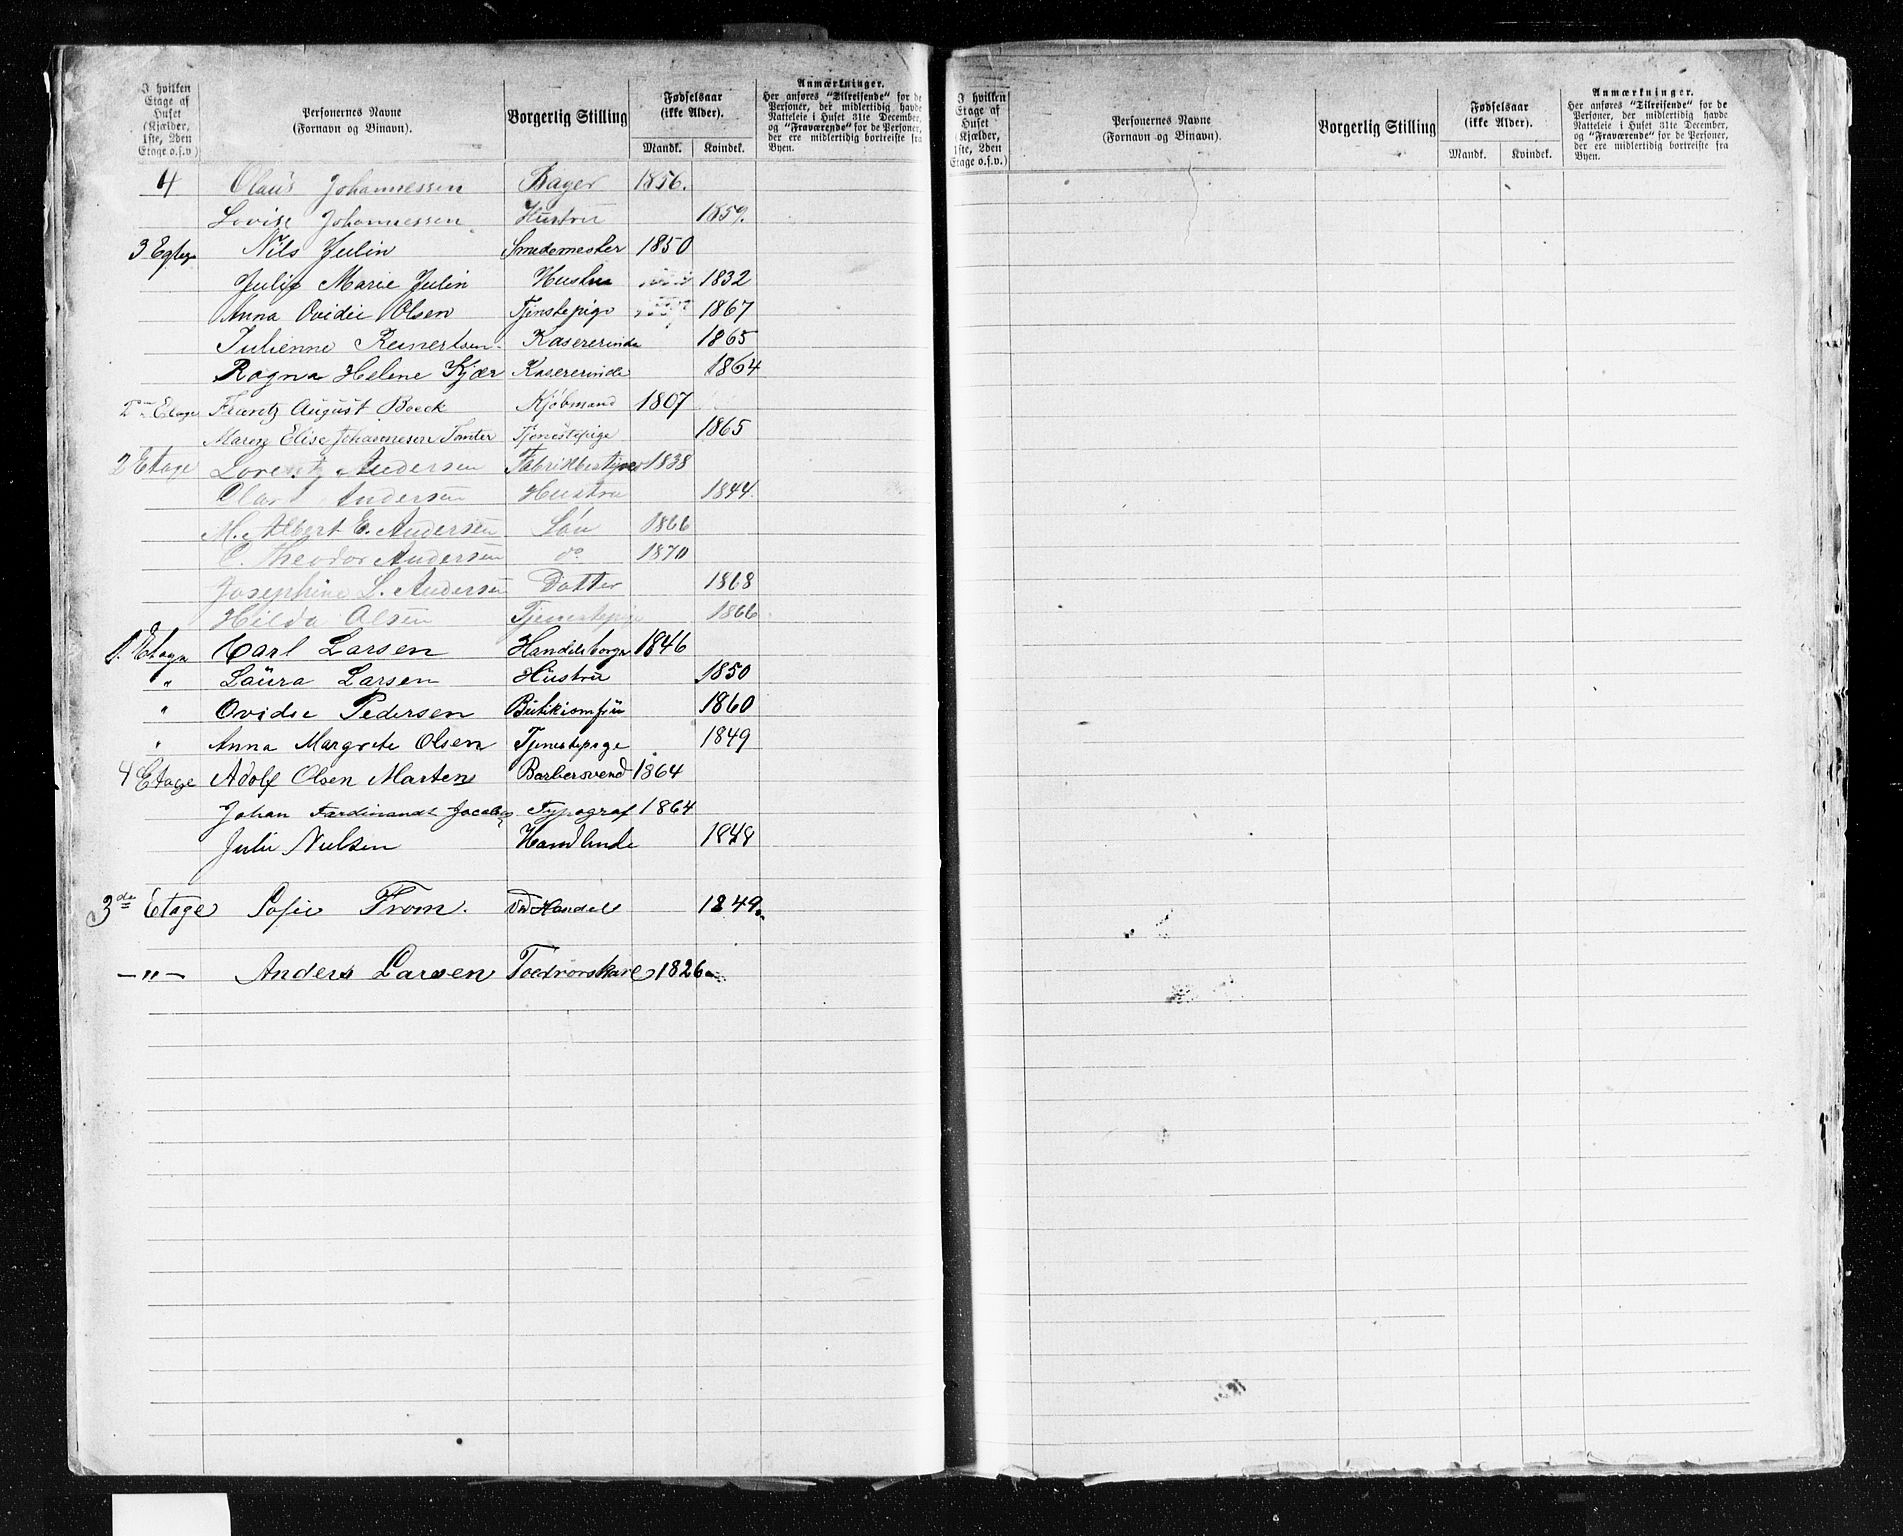 I hvilken Etage af Huset (Kjælder, 1ste, 2den Etage o.s.v.)
Personernes Navne (Fornavn og Binavn).
Borgerlig Stilling
Fødselsaar (ikke Alder).
Mandk. Kvindek.
Anmærkninger.
Her anføres "Tilreisende" for de Personer, der midlertidig havde Natteleie i Huset 31te December, og "Fraværende" for de Personer, der ere midlertidig bortreiste fra Byen.
4 Olaus Johannessen Bager 1856.
Lovise Johannessen Hustru 1859.
3 Etage Nils Julin Smedemester 1850
Julie Marie Julin Hustru 1832
Anna Ovidie Olsen Tjenstepige 1867
Julienne Reinertsen Kasererinde 1865
Ragna Helene Kjær Kasererinde 1864
2 Etage August Boeck Kjøbmand 1807
Elise Johannesen Tjenestepige 1865
2 Etage Lorentz Andersen Fabrikbestyrer 1838
Andersen Hustru 1844
M. Albert E. Andersen Søn 1866
C. Theodor Andersen do 1870
Josephine L. Andersen Datter 1868
Hilda Olsen Tjenestepige 1866
1. Etage Carl Larsen Handelsborger 1846
" Laura Larsen Hustru 1850
" Ovidie Pedersen Butikjomfru 1860
" Anna Margrete Olsen Tjenestepige 1849
4 Etage Adolf Olsen Marten Barbersvend 1864
Johan Ferdinandt Jacobs Typograf 1864
Julie Nielsen Handlende 1848
3de Etage Sofie From. Ved Handel 1849.
—"— Anders Larsen 1826
I hvilken Etage af Huset (Kjælder, 1ste, 2den Etage o.s.v.)
Personernes Navne (Fornavn og Binavn).
Borgerlig Stilling
Fødselsaar (ikke Alder).
Mandk. Kvindek.
Anmærkninger.
Her anføres "Tilreisende" for de Personer, der midlertidig havde Natteleie i Huset 31te December, og "Fraværende" for de Personer, der ere midlertidig bortreiste fra Byen.